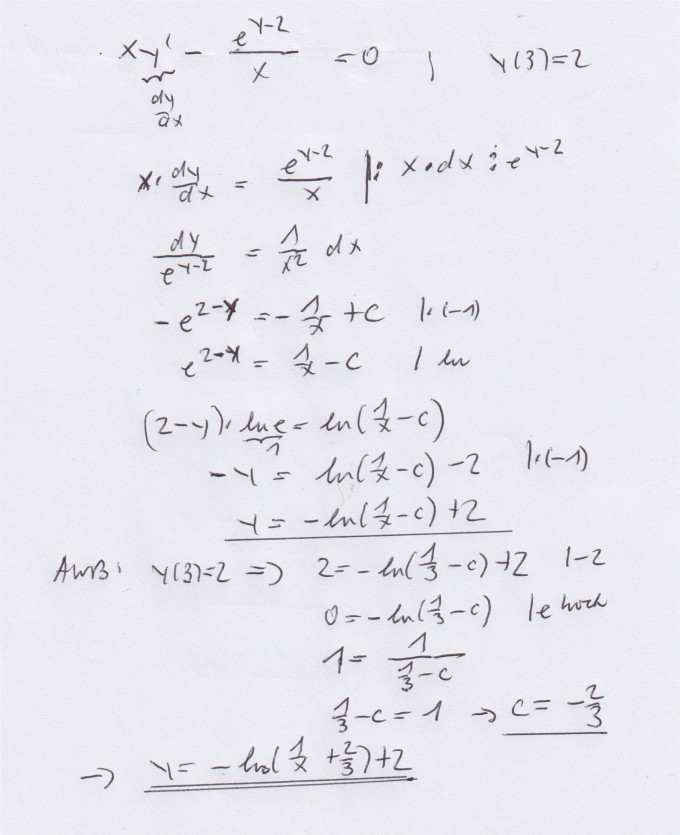 xy' - e^(y-2)/x = 0 ; y(3)=2
dy/dx
x · dy/dx = e^(y-2)/x |: x • dx : e^(y-2)
dy/e^(y-2) = 1/x² dx
-e^(2-y) = -1/x + c |·(-1)
e^(2-y) = 1/x - c | ln
(2-y) · ln e = ln(1/x - c)
1
-y = ln(1/x - c) - 2 |·(-1)
y = -ln(1/x - c) + 2
AWB: y(3)=2 => 2 = -ln(1/3 - c) + 2 |-2
0 = -ln(1/3 - c) | e hoch
1 = 1/(1/3 - c)
1/3 - c = 1 → c = -2/3
→ y = -ln(1/x + 2/3) + 2